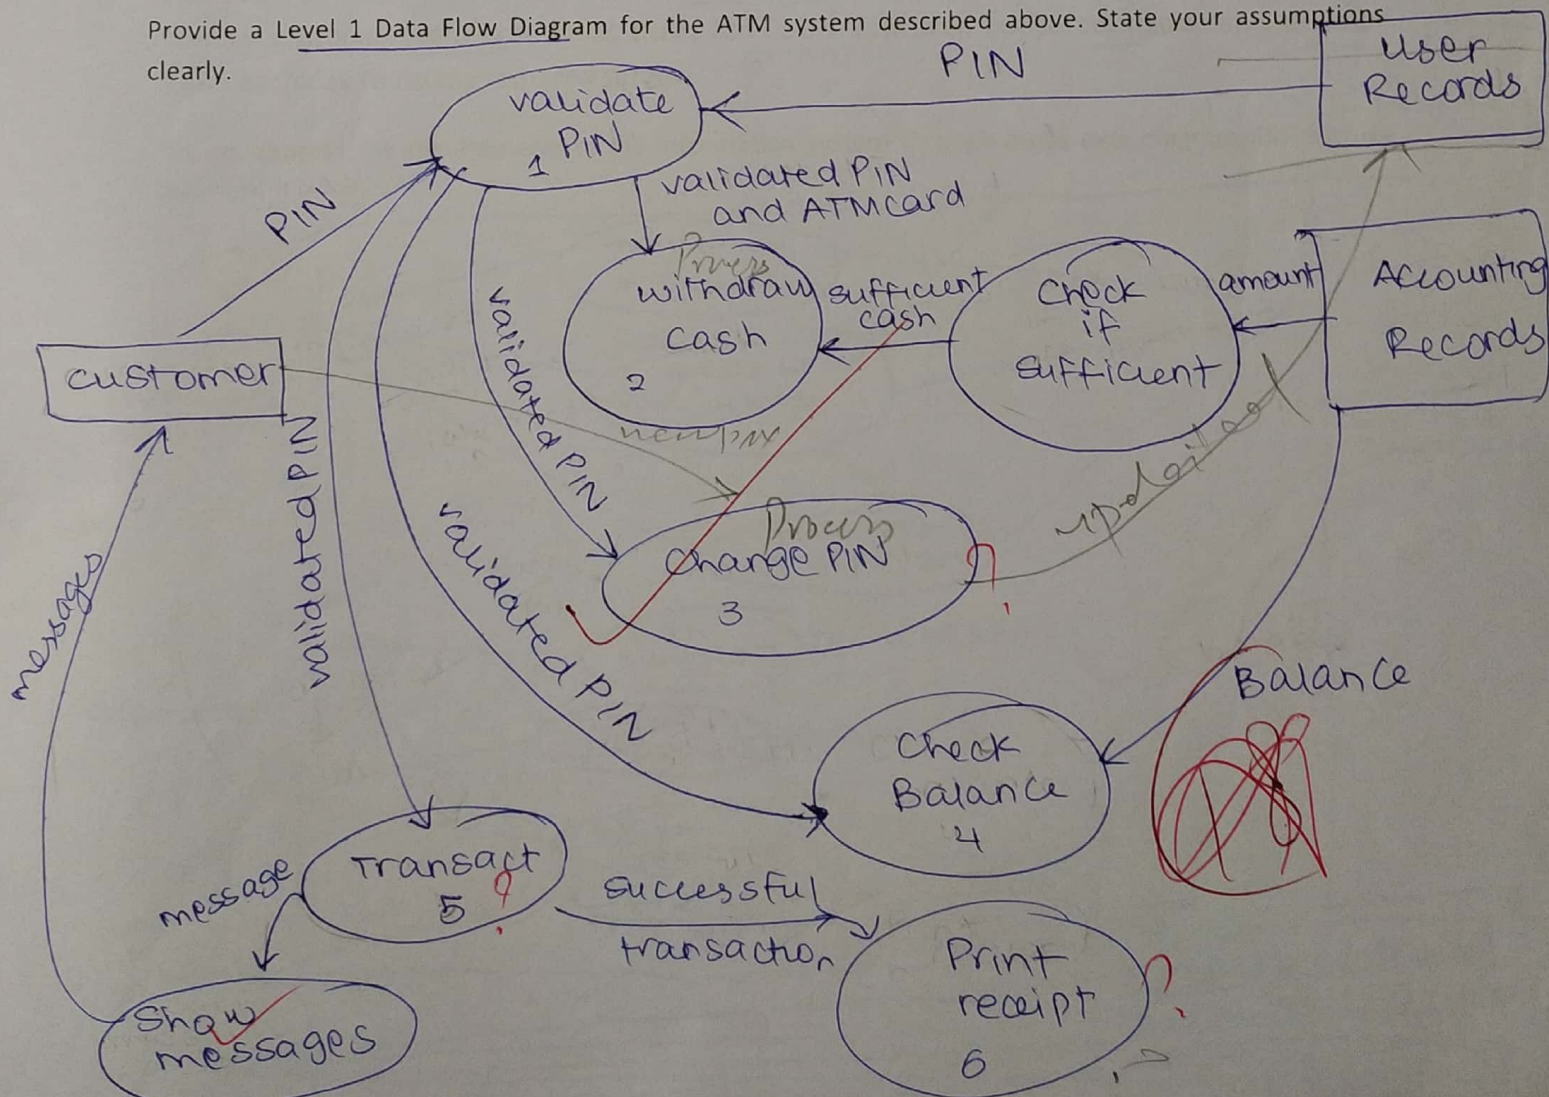 Provide a Level 1 Data Flow Diagram for the ATM system described above. State your assumptions
clearly.
PIN
User
Records
validate
PIN
1
PIN
validated PIN
and ATMcard
Process
withdraw
cash
2
sufficient
cash
Check
if
sufficient
amount
Accounting
Records
customer
validated PIN
new pin
updated
Process
Change PIN
3
?
validated PIN
validated PIN
messages
Balance
Check
Balance
4
Transact
5
?
message
successful
transaction
Print
receipt
6
?
Show
messages